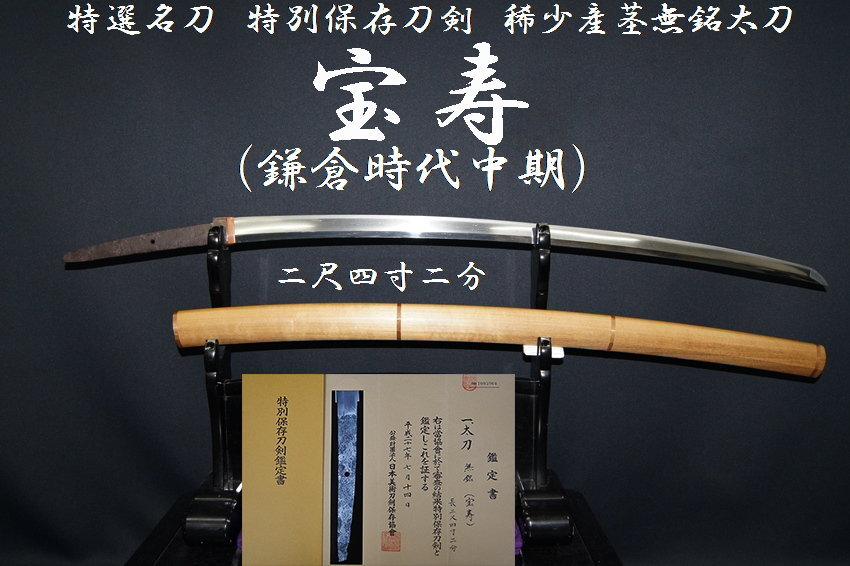 特選名刀 特別保存刀剣 稀少産茎無銘太刀
宝寿
(鎌倉時代中期)
二尺四寸二分
特別保存刀剣鑑定書
鑑定書
一太刀 無銘(宝寿)
長二尺四寸二分
右は當協會に於て審査の結果特別保存刀剣と
鑑定しこれを証する
平成二十七年七月十四日
公益財團法人日本美術刀剣保存協會